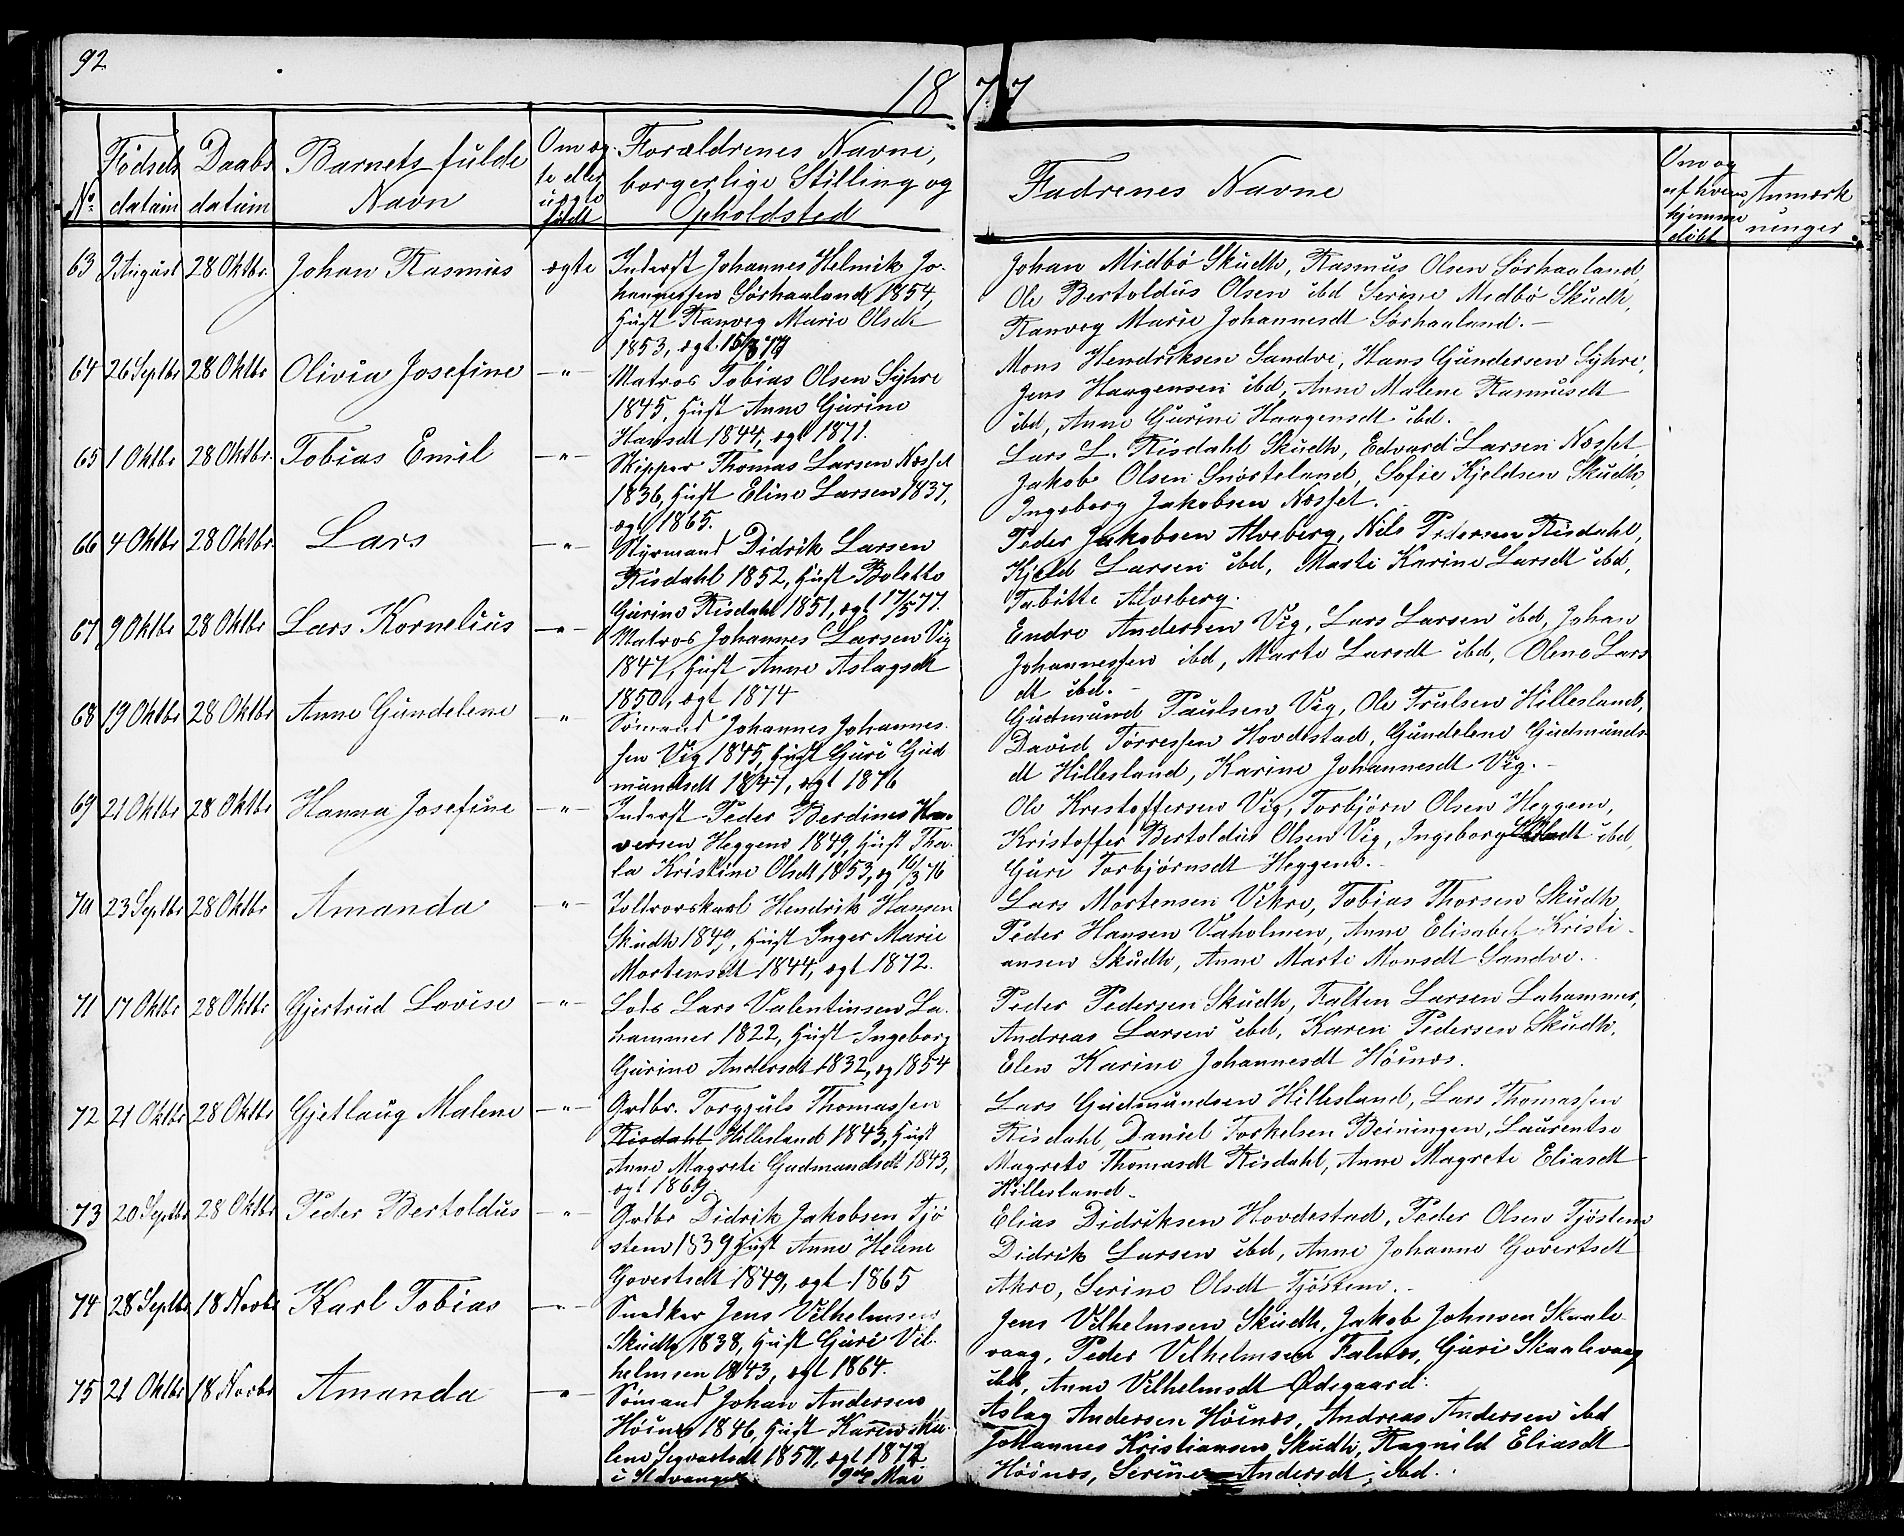 92
1877
No.
Fødsels
datum
Daabs
datum
Barnets fulde
Navn
Om æg-
te eller
uægte
født
Forældrenes Navne,
borgerlige Stilling og
Opholdsted
Fadrenes Navne
Om og
af hvem
hjemme
døbt
Anmærk
ninger
63 2 August 28 Oktbr. Johan Rasmus ægte
Inderst Johannes Helmik Jo-
hannessen Sørhaaland 1854,
Hust Ranveg Marie Olsdt
1853, ægt.
Johan Midbø Skudh, Rasmus Olsen Sørhaaland,
Ole Bertoldus Olsen ibd Serine Midbø Skudh,
Ranveg Marie Johannesdt Sørhaaland.-
64 26 Septbr 28 Oktbr Olivia Josefine -"-
Matros Tobias Olsen Syhre
1845, Hust Anne Gurine
Hansdt 1844, ægt 1871.
Mons Hendriksen Sandve, Hans Gundersen Syhre,
Jens Haagensen ibd, Anne Malene Rasmusdt
ibd, Anne Gurine Haagensdt ibd.
65 1 Oktbr 28 Oktbr. Tobias Emil -"-
Skipper Thomas Larsen Næsset
1836, Hust Eline Larsen 1837,
ægt 1865.
Lars L. Risdahl Skudh, Edvard Larsen Næsset,
Jakob Olsen Snørteland, Sofie Kjeldsen Skudh,
Ingeborg Jakobsen Næsset.
66 4 Oktbr 28 Oktbr. Lars -"-
Styrmand Didrik Larsen
Risdahl 1852, Hust Bolette
Gurine Risdahl 1851, ægt 17/5 77.
Peder Jakobsen Alveberg, Nils Pedersen Risdahl,
Kjeld Larsen ibd, Marte Karine Larsdt ibd,
Tabitte Alveberg.
67 9 Oktbr 28 Oktbr Lars Kornelius -"-
Matros Johannes Larsen Vig
1847, Hust Anne Aslagsdt
1850, ægt 1874
Endre Andersen Vig, Lars Larsen ibd, Johan
Johannessen ibd, Marte Larsdt ibd, Olene Lars
dt ibd.-
68 19 Oktbr 28 Oktbr Anne Gundelene -"-
Sømand Johannes Johannes-
sen Vig 1845, Hust Guri Gud
mundsdt 1847, ægt 1876
Gudmund Paulsen Vig, Ole Trulsen Hillesland,
David Tørressen Hovdestad, Gundelene Gudmunds-
dt Hillesland, Karine Johannesdt Vig.-
69 21 Oktbr 28 Oktbr Hanna Josefine -"-
Inderst Peder Berdines
versen Heggem 1849, Hust Tha-
la Kristine Olsdt 1853, æg 16/3 76
Ole Krestoffersen Vig, Torbjørn Olsen Heggem,
Kristoffer Bertoldus Olsen Vig, Ingeborg ibd,
Guri Torbjørnsdt Heggem.
70 23 Septbr 28 Oktbr Amanda -"-
Toldrorskarl Hendrik Hansen
Skudh 1849, Hust Inger Marie
Mortensdt 1844, ægt 1872.
Lars Mortensen Vikre, Tobias Thorsen Skudh,
Peder Hansen Vaholmen, Anne Elisabet Kristi-
ansen Skudh, Anne Marte Monsdt Sandve.
71 17 Oktbr 28 Oktbr Gjertrud Lovise -"-
Lods Lars Valentinsen La-
hammer 1822, Hust Ingeborg
Gurine Andersdt 1832, æg 1854
Peder Pedersen Skudh, Falten Larsen Lahammer,
Andreas Larsen ibd, Karen Pedersen Skudh,
Elen Karine Johannesdt Høinæs.
72 21 Oktbr 28 Oktbr Gjetlaug Malene -"-
Grdbr. Torgjuls Thomassen
Risdahl Hillesland 1843, Hust
Anne Magrete Gudmundsdt 1843,
ægt 1869.
Lars Gudmundsen Hillesland, Lars Thomassen
Risdahl, Daniel Torkelsen Beiningen, Laurentse
Magrete Thomasdt Risdahl, Anne Magrete Eliasdt
Hillesland.
73 20 Septbr 28 Oktbr Peder Bertoldus -"-
Grdbr Didrik Jakobsen Tjø
stem 1839 Hust Anne Helene
Govertsdt 1849, ægt. 1865
Elias Didriksen Hovdestad, Peder Olsen Tjøstem,
Didrik Larsen ibd, Anne Johanne Govertsdt
Akre, Serine Olsdt Tjøstem.
74 28 Septbr 18 Novbr Karl Tobias -"-
Snedker Jens Vilhelmsen
Skudh 1838, Hust Guri Vil-
helmsen 1843, ægt 1864.
Jens Vilhelmsen Skudh, Jakob Johnsen Skaale-
vaag, Peder Vilhelmsen Falnæs, Guri Skaalevaag
ibd, Anne Vilhelmsdt Ødegaard.
75 21 Oktbr 18 Novbr Amanda -"-
Sømand Johan Andersen
Høinæs 1846, Hust Karen Ma-
lene Sigvartsdt 1850, ægt 1872
i Stavanger 9de Mai
Aslag Andersen Høinæs, Andreas Andersen ibd
Johannes Kristiansen Skudh, Ragnild Eliasdt
Høinæs, Serine Andersdt, ibd.